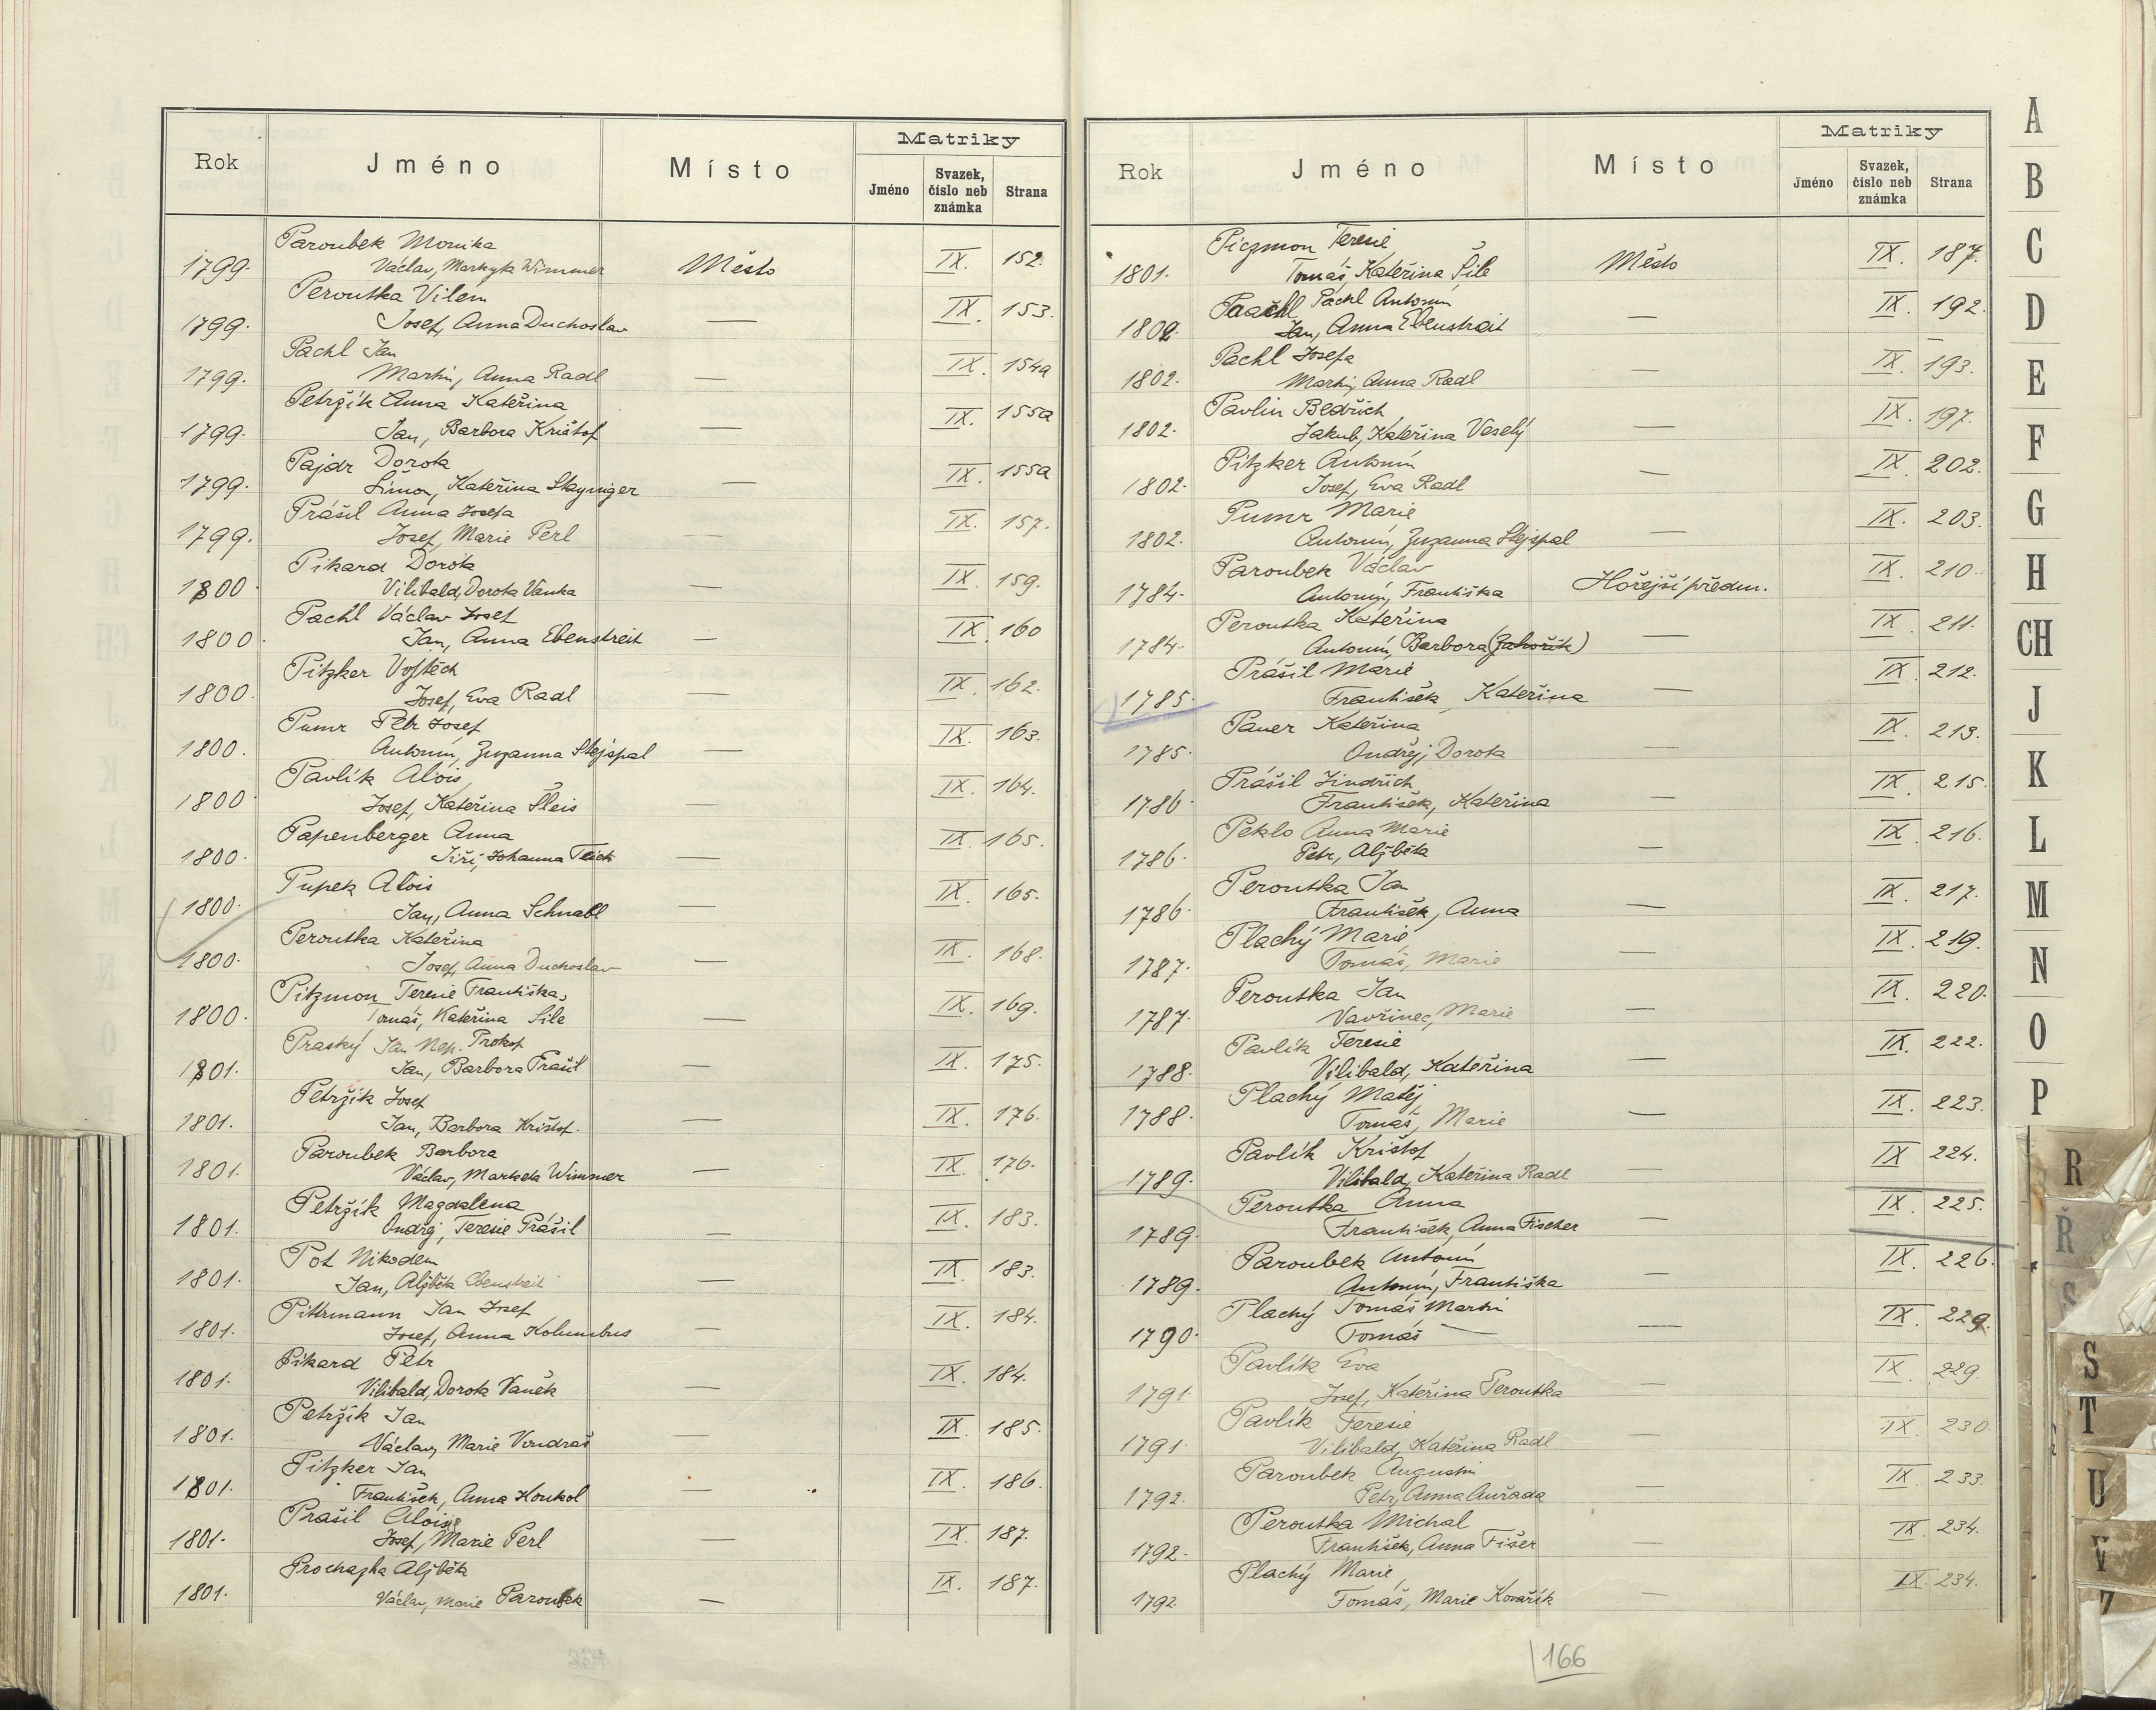 Rok Jméno Místo Matriky
Jméno Svazek, číslo neb známka Strana
Paroubek Monika
1799. Václav, Markyta Wimmer Město IX. 152.
Peroutka Vilem
1799. Josef, Anna Duchoslav — IX. 153.
Pachl Jan
1799. Martin, Anna Radl — IX. 154a
Petržík Anna Kateřina
1799. Jan, Barbora Krištof — IX. 155a
Pajdr Dorota
1799. Šimon, Kateřina — IX. 155a
Prášil Anna Josefa
1799. Josef, Marie Perl — IX. 157.
Pikard Dorota
1800. Vilibald, Dorota Vanka — IX. 159.
Pachl Václav Josef
1800. Jan, Anna Ebenstreit — IX. 160
Pitzker Vojtěch
1800. Josef, Eva Radl — IX. 162.
Pumr Petr Josef
1800. Antonín, Zuzanna Stejspal — IX. 163.
Pavlík Alois
1800. Josef, Kateřina Šleis — IX. 164.
Papenberger Anna
1800. Jiří, Johanna — IX. 165.
Pupek Alois
1800. Jan, Anna Schnabl — IX. 165.
Peroutka Kateřina
1800. Josef, Anna Duchoslav — IX. 168.
Pitzmon Teresie Františka,
1800. Tomáš, Kateřina Sile — IX. 169.
Praský Jan Nep. Prokop
1801. Jan, Barbora Prašil — IX. 175.
Petržík Josef
1801. Jan, Barbora Krištof. — IX. 176.
Paroubek Barbora
1801. Václav, Marketa Wimmer — IX. 176.
Petržík Magdalena
1801. Ondřej, Teresie Prášil — IX. 183.
Pot Nikodem
1801. Jan, Alžběta Ebenstreit — IX. 183.
Pittrmann Jan Josef
1801. Josef, Anna Kolumbus — IX. 184.
Pikard Petr
1801. Vilibald, Dorota Vaněk — IX. 184.
Petržík Jan
1801. Václav, Marie Vondraš — IX. 185.
Pitzker Jan
1801. František, Anna Koukol — IX. 186.
Prašil Aloisie
1801. Josef, Marie Perl — IX. 187.
Prochazka Alžběta
1801. Václav, Marie Paroubek — IX. 187.
Rok Jméno Místo Matriky
Jméno Svazek, číslo neb známka Strana
Piczmon Teresie
1801. Tomáš, Kateřina Šile Město IX. 187.
Paachl Pachl Antonín
1802. Jan, Anna Ebenstreit — IX. 192.
Pachl Josefa
1802. Martin, Anna Radl — IX. 193.
Pavlin Bedřich
1802. Jakub, Kateřina Veselý — IX. 197.
Pitzker Antonín
1802. Josef, Eva Radl — IX. 202.
Pumr Marie
1802. Antonín, Zuzanna Stejspal — IX. 203.
Paroubek Václav
1784. Antonín, Františka Hořejší předm. IX. 210.
Peroutka Kateřina
1784. Antonín, Barbora (Zahořík) — IX. 211.
Prášil Marie
1785. František, Kateřina — IX. 212.
Pauer Kateřina
1785. Ondřej, Dorota — IX. 213.
Prášil Jindřich
1786. František, Kateřina — IX. 215.
Peklo Anna Marie
1786. Petr, Alžběta — IX. 216.
Peroutka Jan
1786. František, Anna — IX. 217.
Plachý Marie
1787. Tomáš, Marie — IX. 219.
Peroutka Jan
1787. Vavřinec, Marie — IX. 220.
Pavlík Teresie
1788. Vilibald, Kateřina — IX. 222.
Plachý Matěj
1788. Tomáš, Marie — IX. 223.
Pavlík Krištof
1789. Vilibald, Kateřina Radl IX 224.
Peroutka Anna
1789. František, Anna Fischer — IX. 225.
Paroubek Antonín
1789. Antonín, Františka — IX. 226.
Plachý Tomáš Martin
1790. Tomáš — — IX. 229.
Pavlík Eva
1791. Josef, Kateřina Peroutka — IX. 229.
Pavlík Teresie
1791. Vilibald, Kateřina Radl — IX. 230.
Paroubek Augustin
1792. Petr, Anna Auřada — IX. 233.
Peroutka Michal
1792. František, Anna Fišer — IX. 234.
Plachý Marie
1792 Tomáš, Marie Kovařík — IX. 234.
166
A
B
C
D
E
F
G
H
CH
J
K
L
M
N
O
P
R
Ř
S
S
T
U
V